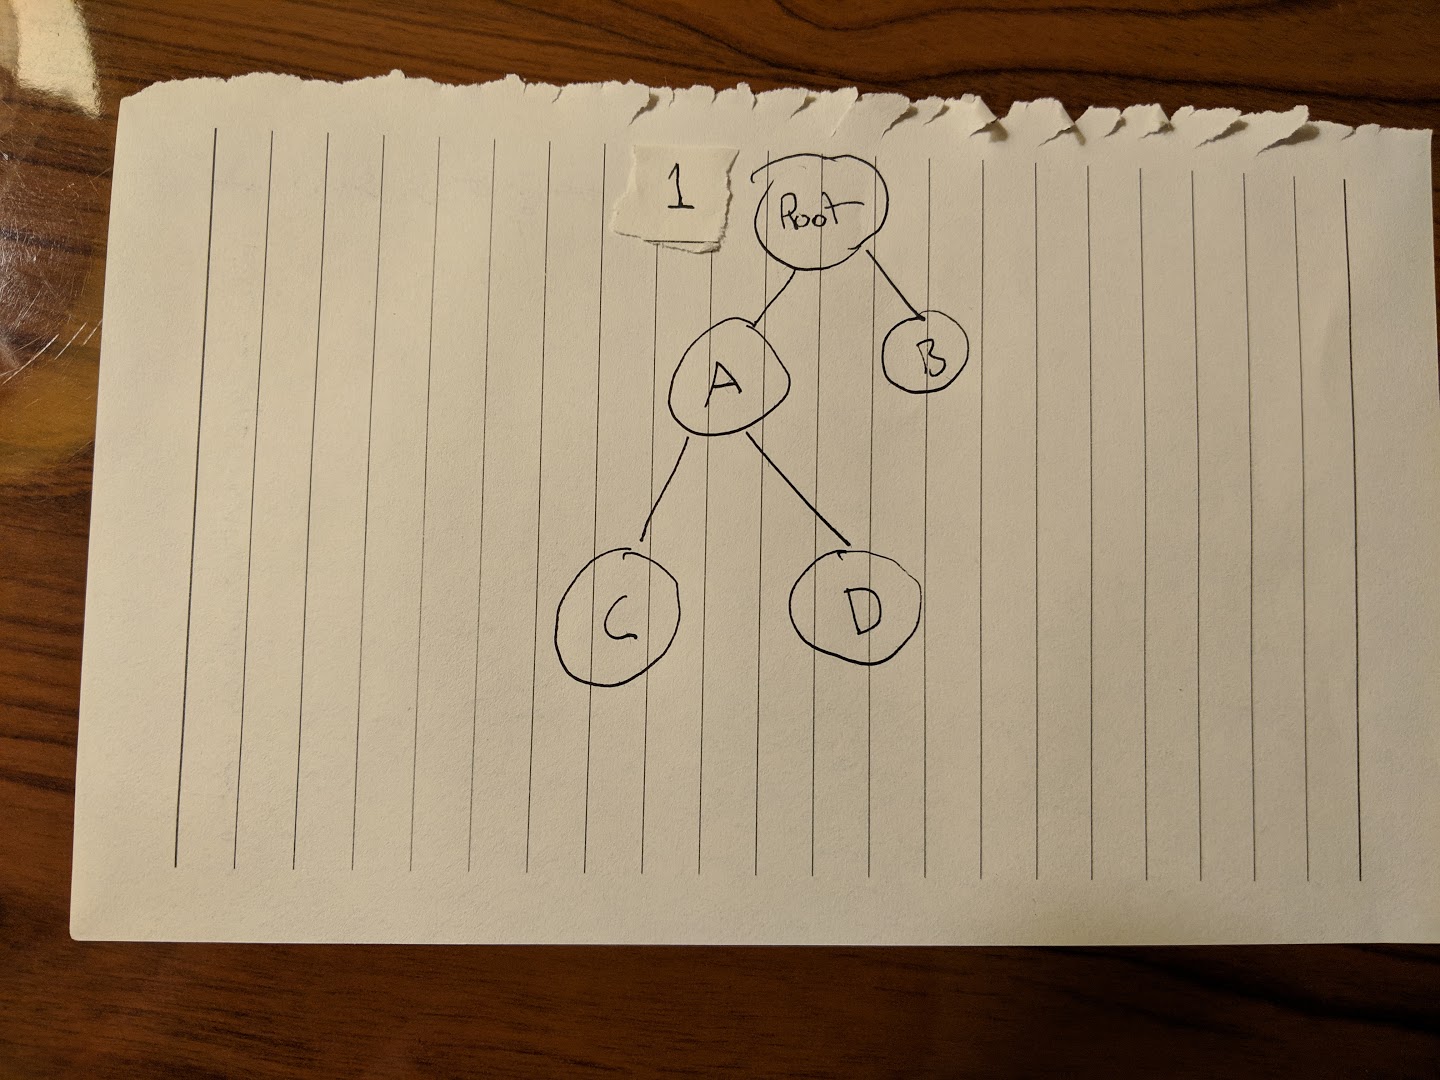 1
Root
A
B
C
D